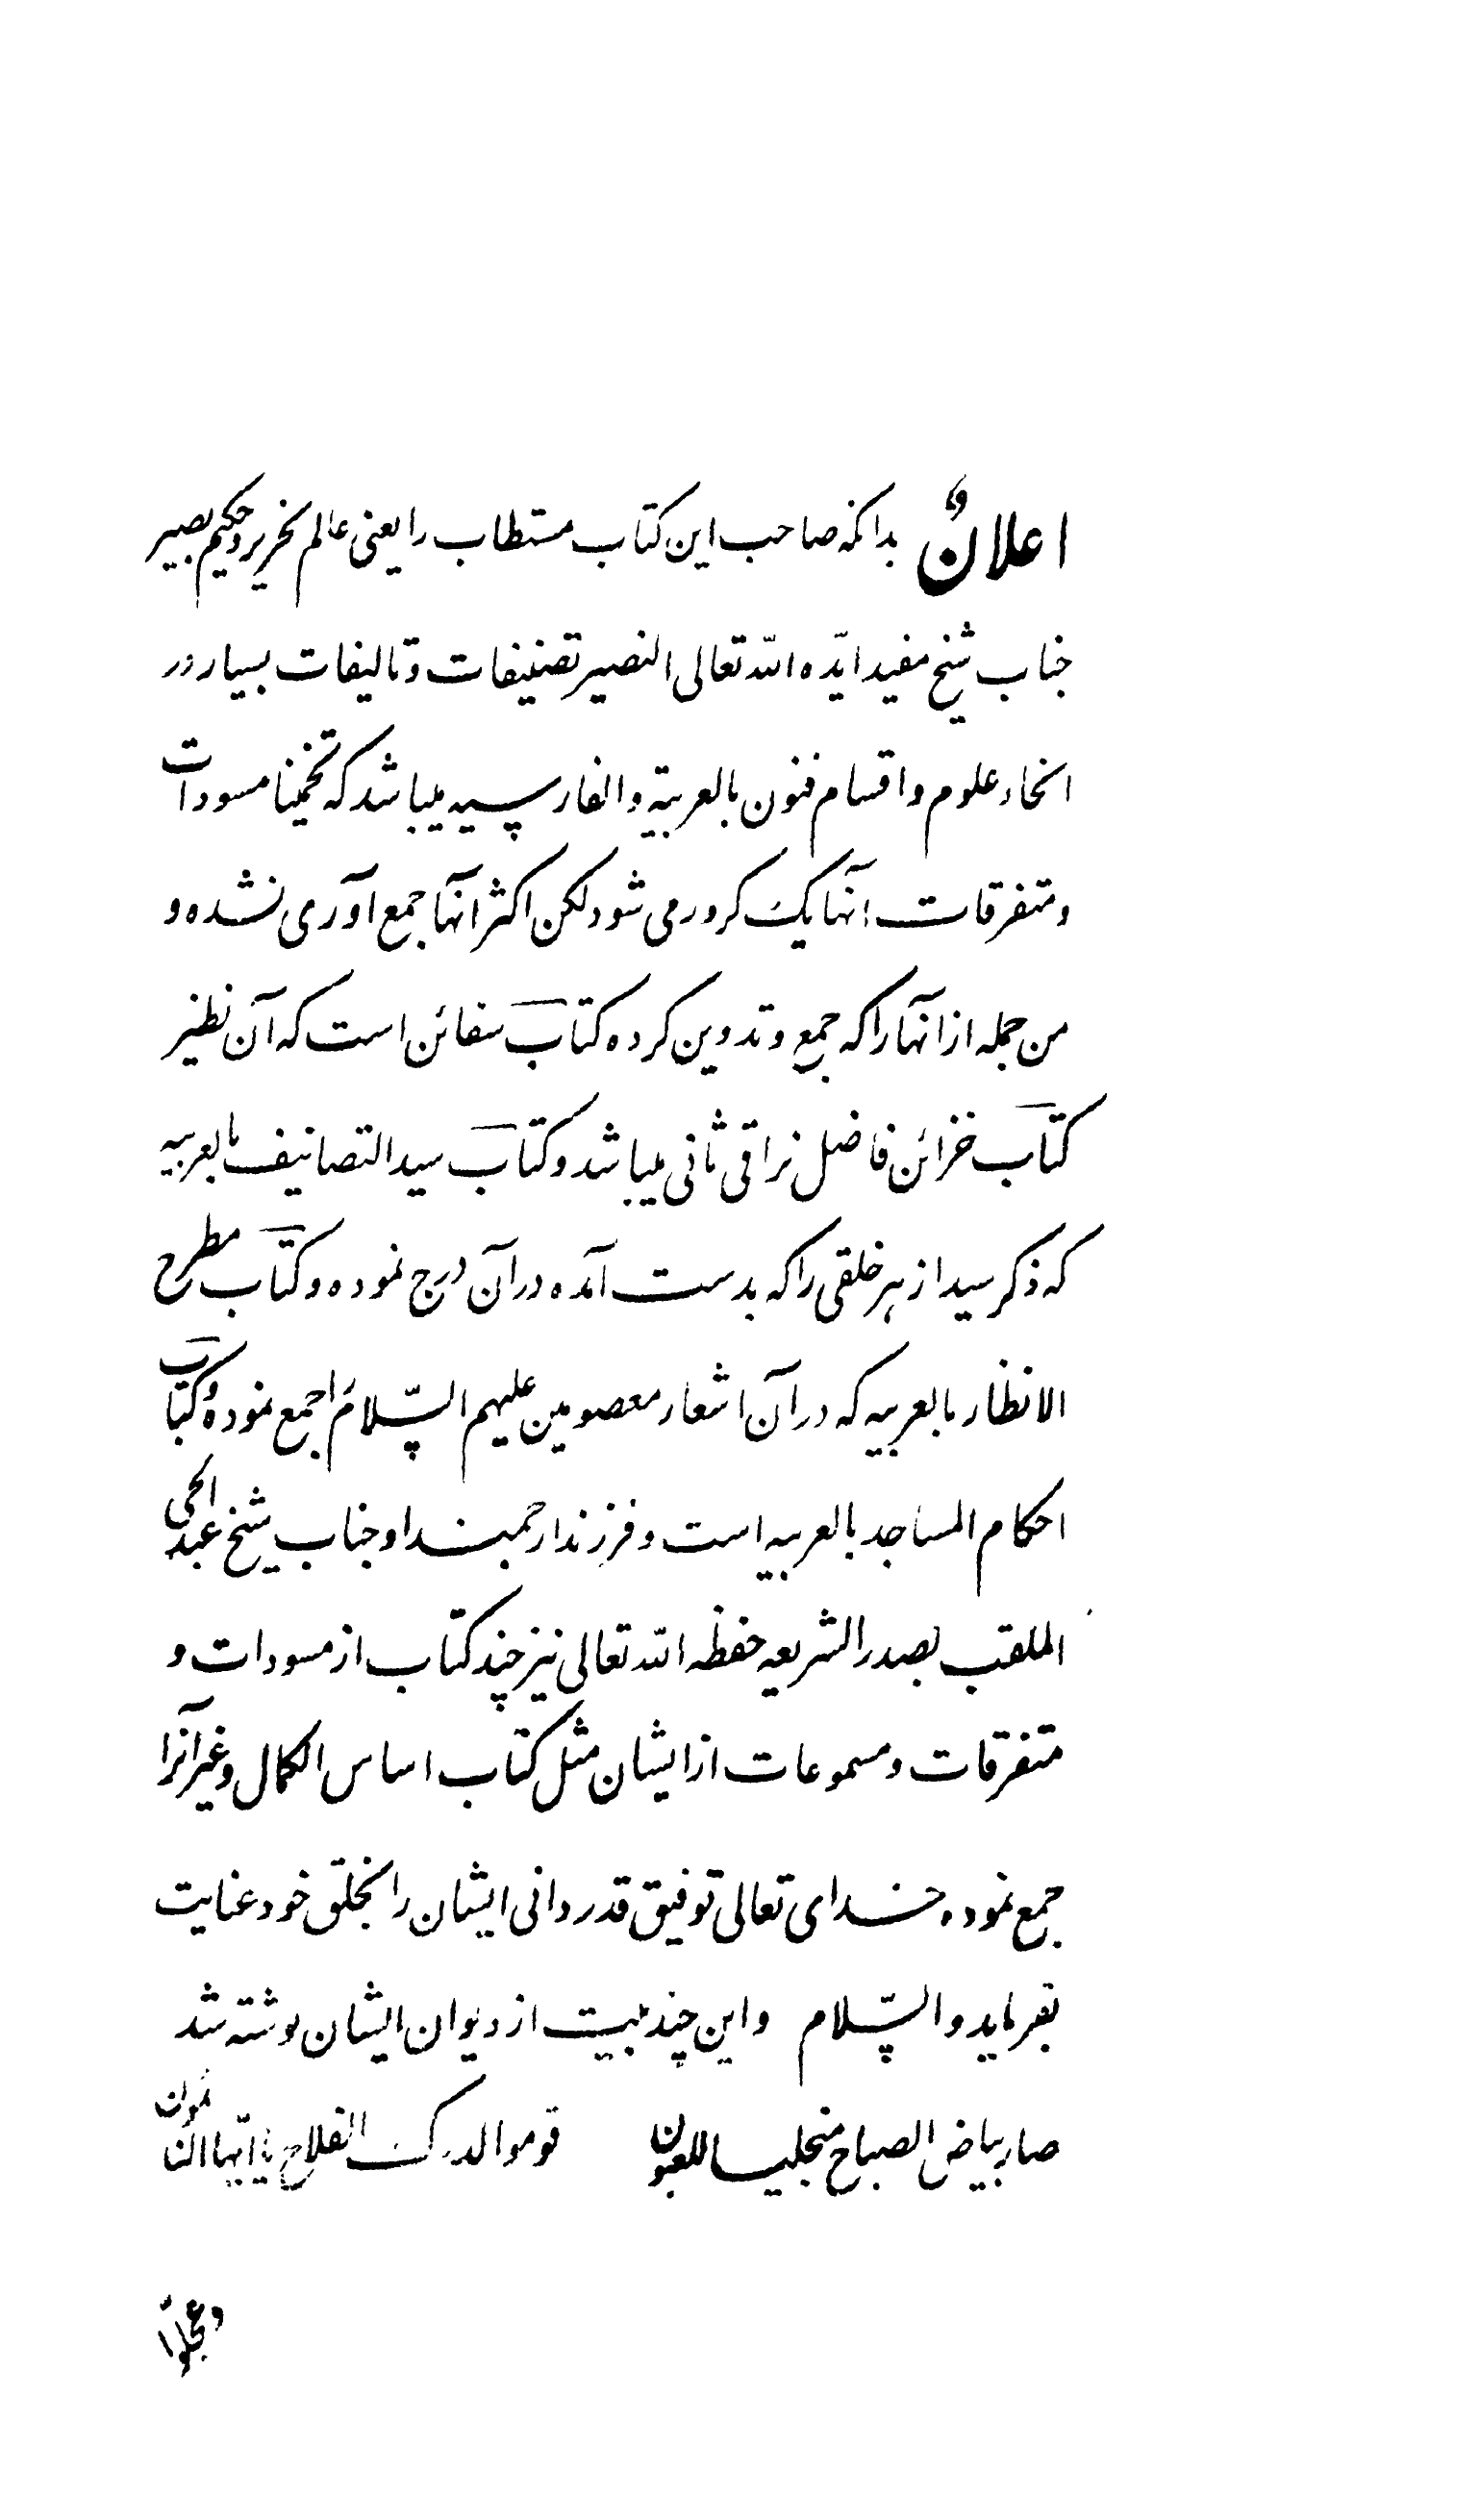 اعلانٌ بدانکه صاحب این کتاب مستطاب را یعنی عالم نحریر و حکیم بصیر
جناب شیخ مفید ایّده اللّه تعالی النصیر تصنیفات و تالیفات بسیار در
انحاء علوم و اقسام فنون بالعربیّة و الفارسیه میباشد که تخمینا مسودات
و متفرقات آنها یک کرور می شود لکن اکثر آنها جمع آوری نشده و
من جمله از انها را که جمع و تدوین کرده کتاب سفائن است که آن نظیر
کتاب خزائن فاضل نراقی ثانی میباشد و کتاب سید التصانیف بالعربیه
که ذکر سید از هر خلقی را که بدست آمده در آن درج نموده و کتاب مطرح
الانظار بالعربیه که در آن اشعار معصومین علیهم السّلام را جمع نموده و کتاب
احکام المساجد بالعربیه است و فرزند ارجمند او جناب شیخ عبد الحی
الملقب بصدر الشریعه حفظه اللّه تعالی نیز چند کتاب از مسودات و
متفرقات و مسموعات از ایشان مثل کتاب اساس الکمال و غیر آنرا
جمع نموده خدای تعالی توفیق قدردانی ایشان را بخلق خود عنایت
بفرماید و السّلام و این چند بیت از دیوان ایشان نوشته شد
صار بیاض الصباح منجلیا للعیون قوموا لدرک الفلاح یا ایّها النائمون